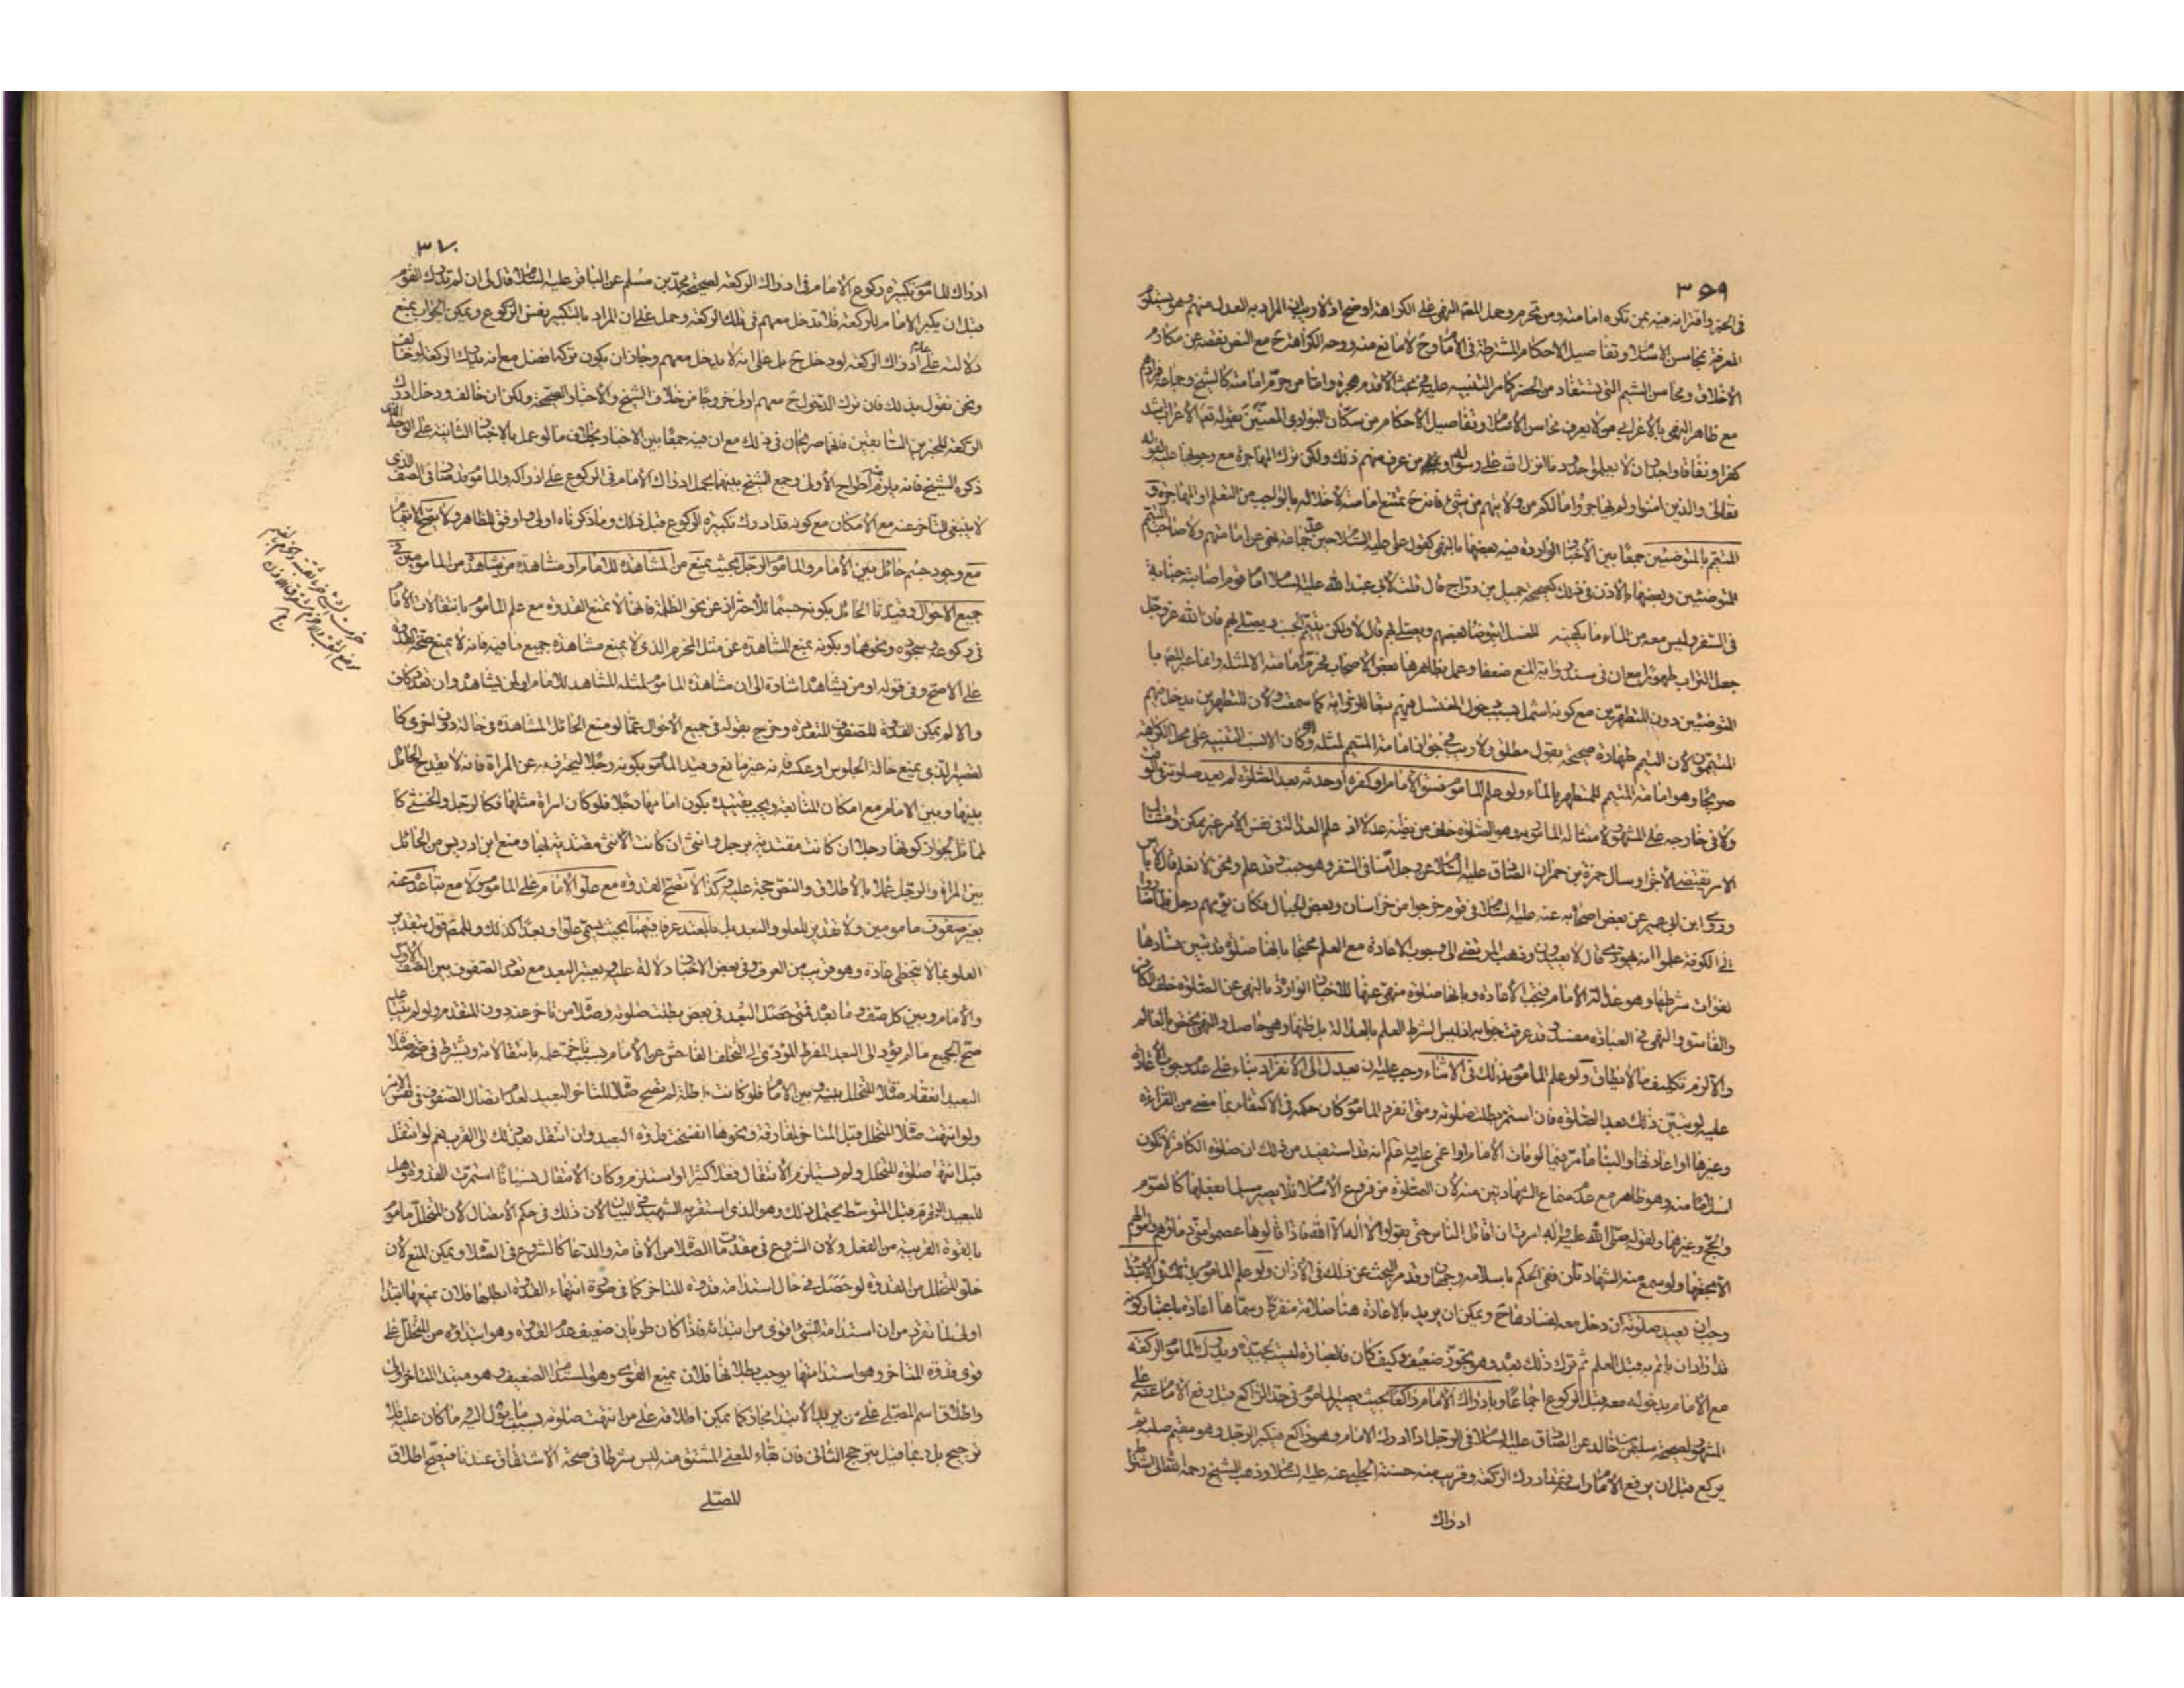 ٣٥٩
في الخبر واقترانه فيه بمن تكره امامته ومن تحرم وحمل المص النهي على الكراهة او ضح اذ لا ريب ان المراد به العدل منهم وهو يستلزم
المعرفة بمحاسن الاسلام وتفاصيل الاحكام المشترطة في الامام وح لا مانع منه ووجه الكراهة ح مع النص نقصه عن مكارم
الاخلاق ومحاسن الشيم التي تستفاد من الحضر كما مر التنبيه عليه في بحث الاقدم هجرة واما من حرم امامته كالشيخ وجماعة
مع ظاهر النهي بالاعرابي من لا يعرف محاسن الاسلام وتفاصيل الاحكام من سكان البوادي المعنيين بقوله تعالى الاعراب اشد
كفرا ونفاقا واجدر ان لا يعلموا حدود ما انزل الله على رسوله او من عرف منهم ذلك ولكن ترك المهاجرة مع وجوبها عليه لقوله
تعالى والذين امنوا ولم يهاجروا ما لكم من ولايتهم من شئ فانه ح يمتنع امامته لاخلاله بالواجب من التعلم او المهاجرة و
المتيمم بالمتوضئين جمعا بين الاخبار الواردة فيه بعضها بالنهي كقول علي عليه السلام
المتوضئين وبعضها بالاذن في ذلك كصحيحة جميل بن دراج قال قلت لابي عبد الله عليه السلام امام قوم اصابته جنابة
في السفر وليس معه من الماء ما يكفيه للغسل ايتوضأ بعضهم ويصلي بهم قال لا ولكن يتيمم الجنب ويصلي بهم فان الله عز وجل
جعل التراب طهورا مع ان في سند رواية المنع ضعفا وعمل بظاهرها بعض الاصحاب فحرم امامته الا لمثله وانما عبر المص با
المتوضئين دون المتطهرين مع كونه اشمل بسبب دخول المغتسل فيهم تبعا للرواية كما سمعت ولان المتطهرين يدخل فيهم
المتيممون لان التيمم طهارة صحيحة بقول مطلق ولا ريب في جواز امامة المتيمم لمثله وكان الانسب التنبيه على محل الكراهة
صريحا وهو امامة المتيمم للمتطهر بالماء ولو علم المأموم فسق الامام او كفره او حدثه بعد الصلوة لم يعد صلوته في الوقت
ولا في خارجه على المشهور لامتثاله المأمور به وهو الصلوة خلف من يظنه عدلا اذ علم العدالة في نفس الامر غير ممكن وامتثال
الامر يقتضي الاجزاء وسأل حمزة بن حمران الصادق عليه السلام عن رجل امنا في السفر وهو جنب وقد علم ونحن لا نعلم قال لا باس
وروى ابن ابي عمير عن بعض اصحابه عنه عليه السلام في قوم خرجوا من خراسان وبعض الجبال فكان يؤمهم رجل فلما صاروا
الى الكوفة علموا انه يهودي قال لا يعيدون وذهب المرتضى الى وجوب الاعادة مع العلم محتجا بانها صلوة قد تبين فسادها
لفوات شرطها وهو عدالة الامام فيجب الاعادة وبانها صلوة منهي عنها للاخبار الواردة بالنهي عن الصلوة خلف الكافر
والفاسق والنهي في العبادة مفسد وقد عرفت جوابه اذ ليس الشرط العلم بالعدالة بل ظنها وهو حاصل والنهي يختص بالعالم
والا لزم تكليف ما لا يطاق ولو علم المأموم بذلك في الاثناء وجب عليه ان يعدل الى الانفراد بناء على عدم وجوب الاعادة
عليه لو تبين ذلك بعد الصلوة فان استمر بطلت صلوته ومتى انفرد المأموم كان حكمه في الاكتفاء بما مضى من القراءة
وغيرها او اعادتها والبناء ما مر فيما لو مات الامام او اغمي عليه واعلم انه قد استفيد من ذلك ان صلوة الكافر لا تكون
اسلاما منه وهو ظاهر مع عدم سماع الشهادتين منه لان الصلوة من فروع الاسلام فلا يصير مسلما بفعلها كالصوم
والحج وغيرهما ولقوله صلى الله عليه واله امرت ان اقاتل الناس حتى يقولوا لا اله الا الله فاذا قالوها عصموا مني دماؤهم واموالهم
الا بحقها ولو سمع منه الشهادتان ففي الحكم باسلامه وجهان وقدم البحث عن ذلك في الاذان ولو علم المأموم بذلك في الابتداء
وجب ان يعيد صلوته ان دخل معه لفسادها ح ويمكن ان يريد بالاعادة هنا صلاته منفردا وسماها اعادة باعتبار كونه
قد اراد ان ياتم به قبل العلم ثم ترك ذلك بعده وهو تجوز ضعيف وكيف كان فالعبارة ليست بجيدة ويدرك المأموم الركعة
مع الامام بدخوله معه قبل الركوع اجماعا وبادراك الامام راكعا بحيث يصير المأموم في حد الراكع قبل رفع الامام على
المشهور لصحيحة سليمان بن خالد عن الصادق عليه السلام في الرجل اذا ادرك الامام وهو راكع فكبر الرجل وهو مقيم صلبه ثم
يركع قبل ان يرفع الامام راسه فقد ادرك الركعة وقريب منه حسنة الحلبي عنه عليه السلام وذهب الشيخ رحمه الله الى اشتراط
ادراك
٣٦٠
ادراك المأموم تكبيرة ركوع الامام في ادراك الركعة لصحيحة محمد بن مسلم عن الباقر عليه السلام قال لي ان لم تدرك القوم
قبل ان يكبر الامام للركعة فلا تدخل معهم في تلك الركعة وحمل على ان المراد بالتكبير نفس الركوع ويمكن الجواب بمنع
دلالته على عدم ادراك الركعة لو دخل ح بل على انه لا يدخل معهم وجاز ان يكون تركها افضل مع انه يدرك الركعة لو خالف
ونحن نقول بذلك فان ترك الدخول ح معهم اولى خروجا من خلاف الشيخ والاخبار الصحيحة ولكن ان خالف ودخل ادرك
الركعة للخبرين السابقين فانهما صريحان في ذلك مع ان فيه جمعا بين الاخبار بخلاف ما لو عمل بالاخبار الثانية على الوجه الذي
ذكره الشيخ فانه يلزم منه اطراح الاولى وجمع الشيخ بينهما بحمل ادراك الامام في الركوع على ادراكه والمأموم قد صار في الصف الذي
لا ينبغي التأخر عنه مع الامكان مع كونه قد ادرك تكبيرة الركوع قبل ذلك وما ذكرناه اولى واوفق للظاهر ولا تصح الايتمام
مع وجود جسم حائل بين الامام والمأموم الرجل بحيث يمنع من المشاهدة للامام او مشاهدة من يشاهده من المأمومين في
جميع الاحوال وقيدنا الحائل بكونه جسما للاحتراز عن نحو الظلمة فانها لا تمنع القدوة مع علم المأموم بانتقالات الامام
في ركوعه وسجوده ونحوهما وبكونه يمنع المشاهدة عن مثل المخرم الذي لا يمنع مشاهدة جميع ما فيه فانه لا يمنع صحة القدوة
على الاصح وفي قوله او من يشاهده اشارة الى ان مشاهدة المأموم لمثله المشاهد للامام او لمن يشاهده وان تعدد كاف
والا لم يمكن القدوة للصفوف المتعددة وخرج بقوله في جميع الاحوال عما لو منع الحائل المشاهدة في حالة دون اخرى كا
لقصير الذي يمنع حالة الجلوس او عكسه فانه غير مانع وقيد المأموم بكونه رجلا ليحترز به عن المراة فانه لا يقدح الحائل
بينها وبين الامام مع امكان المتابعة ويجب تقييده بكون امامها رجلا فلو كان امراة مثلها فكالرجل والخنثى كا
لمماثل لجواز كونها رجلا ان كانت مقتدية برجل وانثى ان كانت الانثى مقتدية بها ومنع ابن ادريس من الحائل
بين المراة والرجل عملا بالاطلاق والنص حجة عليه وكذا لا تصح القدوة مع علو الامام على المأموم ولا مع تباعده عنه
بغير صفوف مأمومين ولا تقدير للعلو والتعدد بل بالبعد عرفا فيهما بحيث يسمى علوا وبعدا كذلك وللمص قول بتقدير
العلو بما لا يتخطى عادة وهو قريب من العرف وفي بعض الاخبار دلالة عليه ويعتبر البعد مع تعدد الصفوف بين الصف الاول
والامام وبين كل صف وما بعده فمتى حصل البعد في بعض بطلت صلوته وصلاة من تاخر عنه دون المتقدم ولو لم يتباعد
صح الجميع ما لم يؤد الى البعد المفرط المؤدي الى التخلف الفاحش عن الامام بسبب تاخر علمه بانتقالاته ويشترط في صحة صلاة
البعيد انعقاد صلاة المتخلل بينه وبين الامام فلو كانت باطلة لم تصح صلاة المتأخر البعيد لعدم اتصال الصفوف في نفس الامر
ولو انتهت صلاة المتخلل قبل المتاخر لمفارقة ونحوها انفسخت قدوة البعيد وان انتقل بعد ذلك الى القرب نعم لو انتقل
قبل انتهاء صلوة المتخلل ولم يستلزم الانتقال فعلا كثيرا او استلزم وكان الانتقال نسيانا استمرت القدوة وهل
للبعيد التحرم قبل المتوسط يحتمل ذلك وهو الذي استقربه الشهيد في البيان لان ذلك في حكم الاتصال لان المتخلل مأموم
بالقوة القريبة من الفعل ولان الشروع في مقدمات الصلاة من الاقامة والدعا كالشروع في الصلاة ويمكن المنع لان
خلو المتخلل من القدوة لو حصل في حال استدامة قدوة المتاخر كما في صورة انتهاء القدوة ابطلها فلان يمنعها ابتداء
اولى لما تقرر من ان استدامة الشئ اقوى من ابتدائه فاذا كان طريان ضعيف عدم القدوة وهو ابتداؤه من المتخلل على
قوي قدوة المتاخر وهو استدامتها يوجب بطلانها فلان يمنع القوي وهو المستدام الضعيف وهو مبتدا المتاخر اولى
واطلاق اسم المصلي على من يريد الابتداء مجاز كما يمكن اطلاقه على من انتهت صلوته بسبب ما يؤل اليه ما كان عليه فلا
ترجيح بل ربما قيل بترجيح الثاني فان بقاء المعنى المشتق منه ليس شرطا في صحة الاشتقاق عندنا فيصح اطلاق
للمصلي